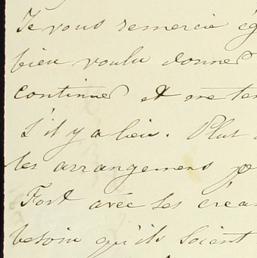 Je vous remercie ég
bien voulu donner
continuer et me ten
S'il y a lieu. Plut
les arrangemens p
Fort avec les créa
besoin qu'ils soient